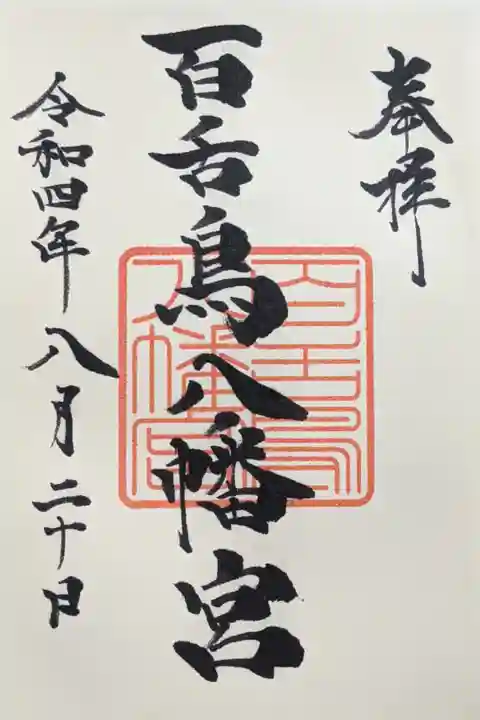 奉拝
百舌鳥八幡宮
令和四年八月二十日
百舌鳥八幡宮